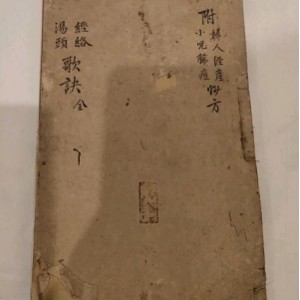 附
婦人經產
小兒
妙方
經絡
湯頭
歌訣全